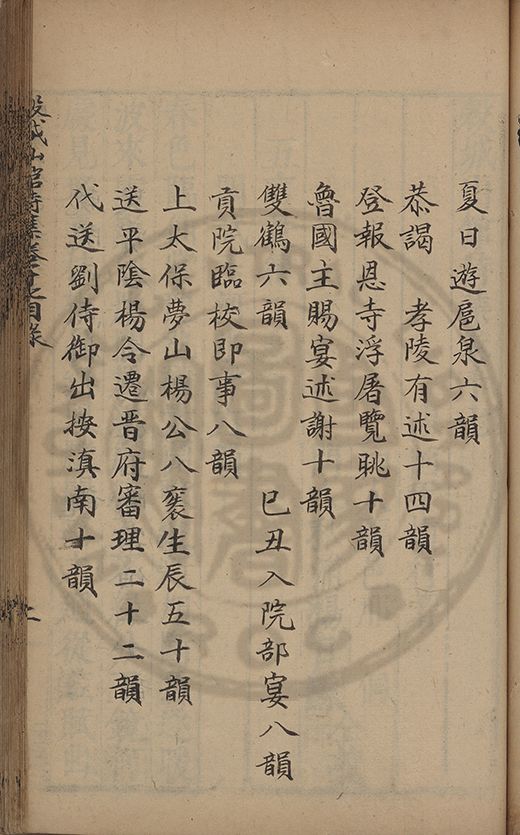 夏日遊扈泉六韻
恭謁 孝陵有述十四韻
登報恩寺浮屠覽眺十韻
魯國主賜宴述謝十韻
雙鶴六韻 巳丑入院部宴八韻
貢院臨校即事八韻
上太保夢山楊公八袠生辰五十韻
送平陰楊令遷晉府審理二十二韻
代送劉侍御出按滇南十韻